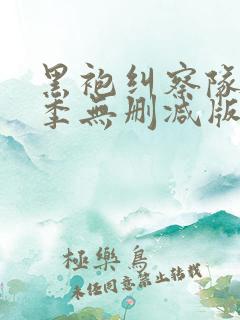 黑袍纠察队
季無删減版
極樂鳥
未经同意禁止转载